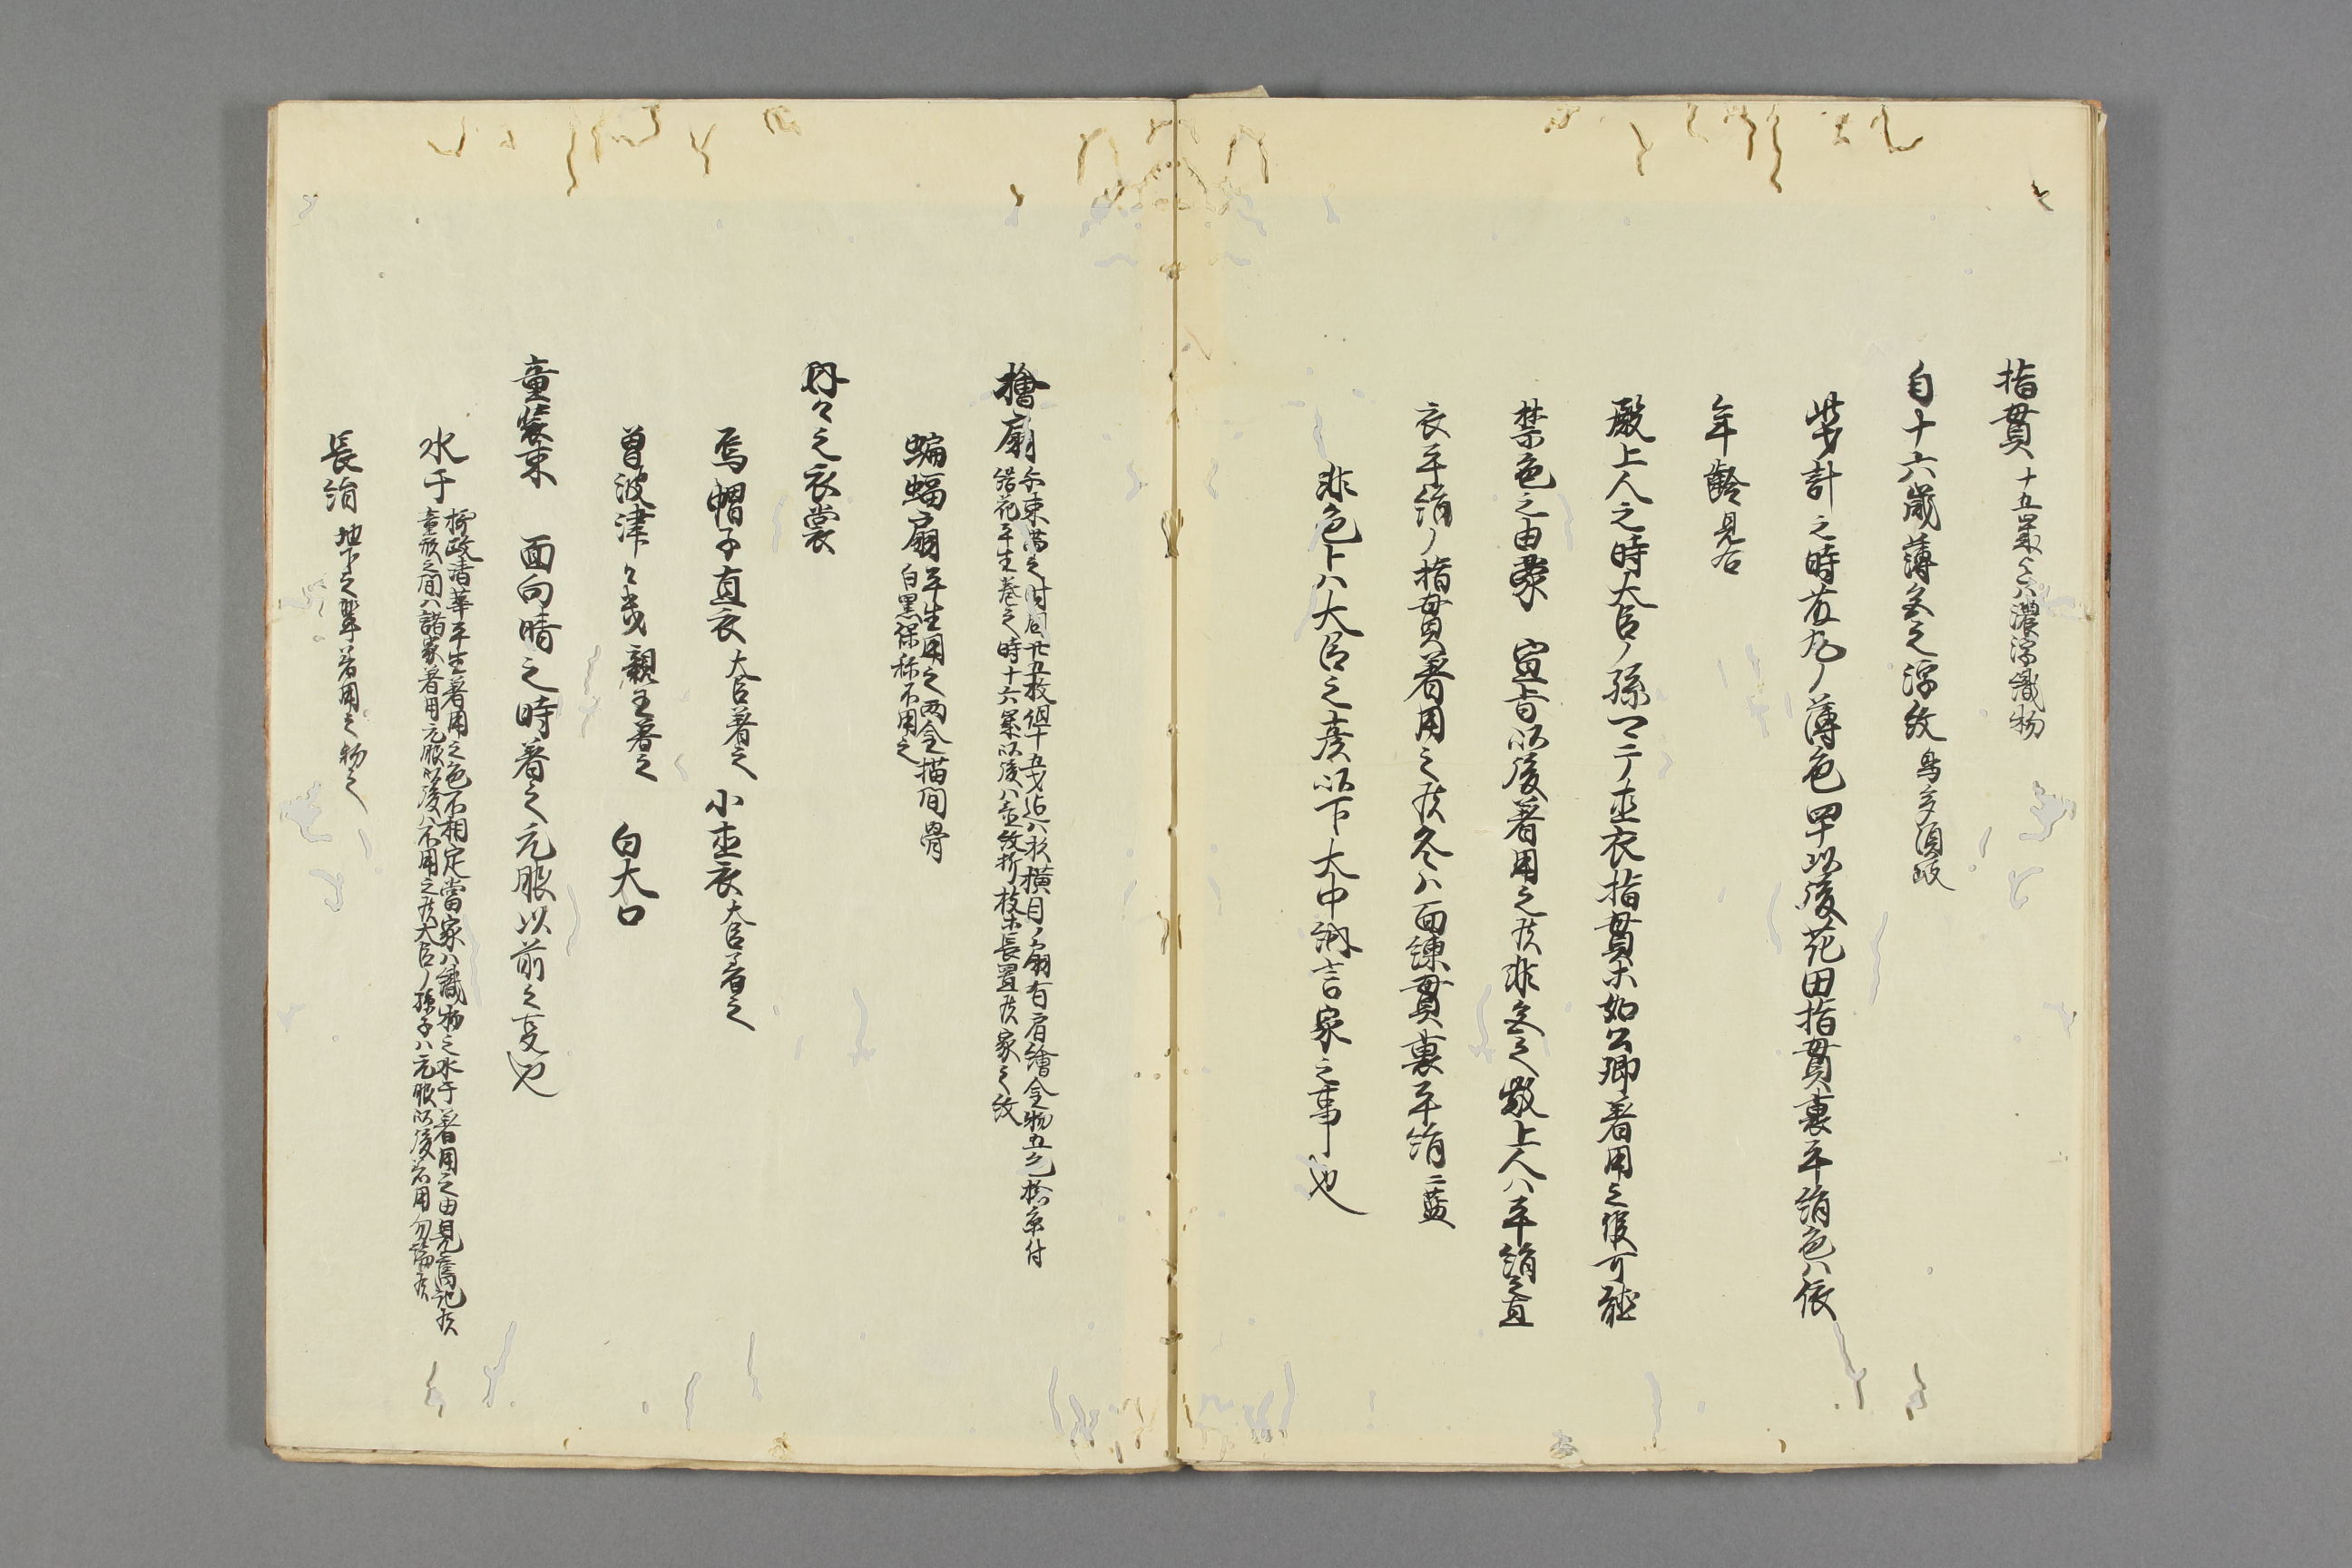 指貫 十五歳迄ハ濃浮織物
自十六歳薄色之浮紋 鳥多須岐
廿才計之時藤丸ノ薄色四十以後花田指貫裏平絹色ハ依
年齢 見右
殿上人之時大臣ノ孫マテノ直衣指貫等如公卿著用之後可聴
禁色之由蒙 宣旨以後著用之候非色之殿上人ハ平絹之直
衣平絹ノ指貫著用之候冬ハ面練貫裏平絹 二藍
非色トハ大臣之彦以下大中納言家之事也
檜扇 束帯之時同廿五枚但十五才迄ハ杉横目ノ扇有肩繪金物五色捻糸付
結花平生巻之時十六歳以後ハ並紋折枝等長置候家之紋
蝙蝠扇 平生用之両金描間骨
白黒保称不用之
内々之衣裳
烏帽子直衣 大臣著之 小直衣 大臣著之
曽波津々幾 親王著之 白大口
童装束 面向晴之時著之元服以前之支也
水干 摂政清華平生著用之色不相定當家ハ織物之水干著用之由見舊記候
童形之間ハ諸家著用元服以後ハ不用之候大臣ノ孫子ハ元服以後着用勿論候
長絹 地下之輩著用之物之